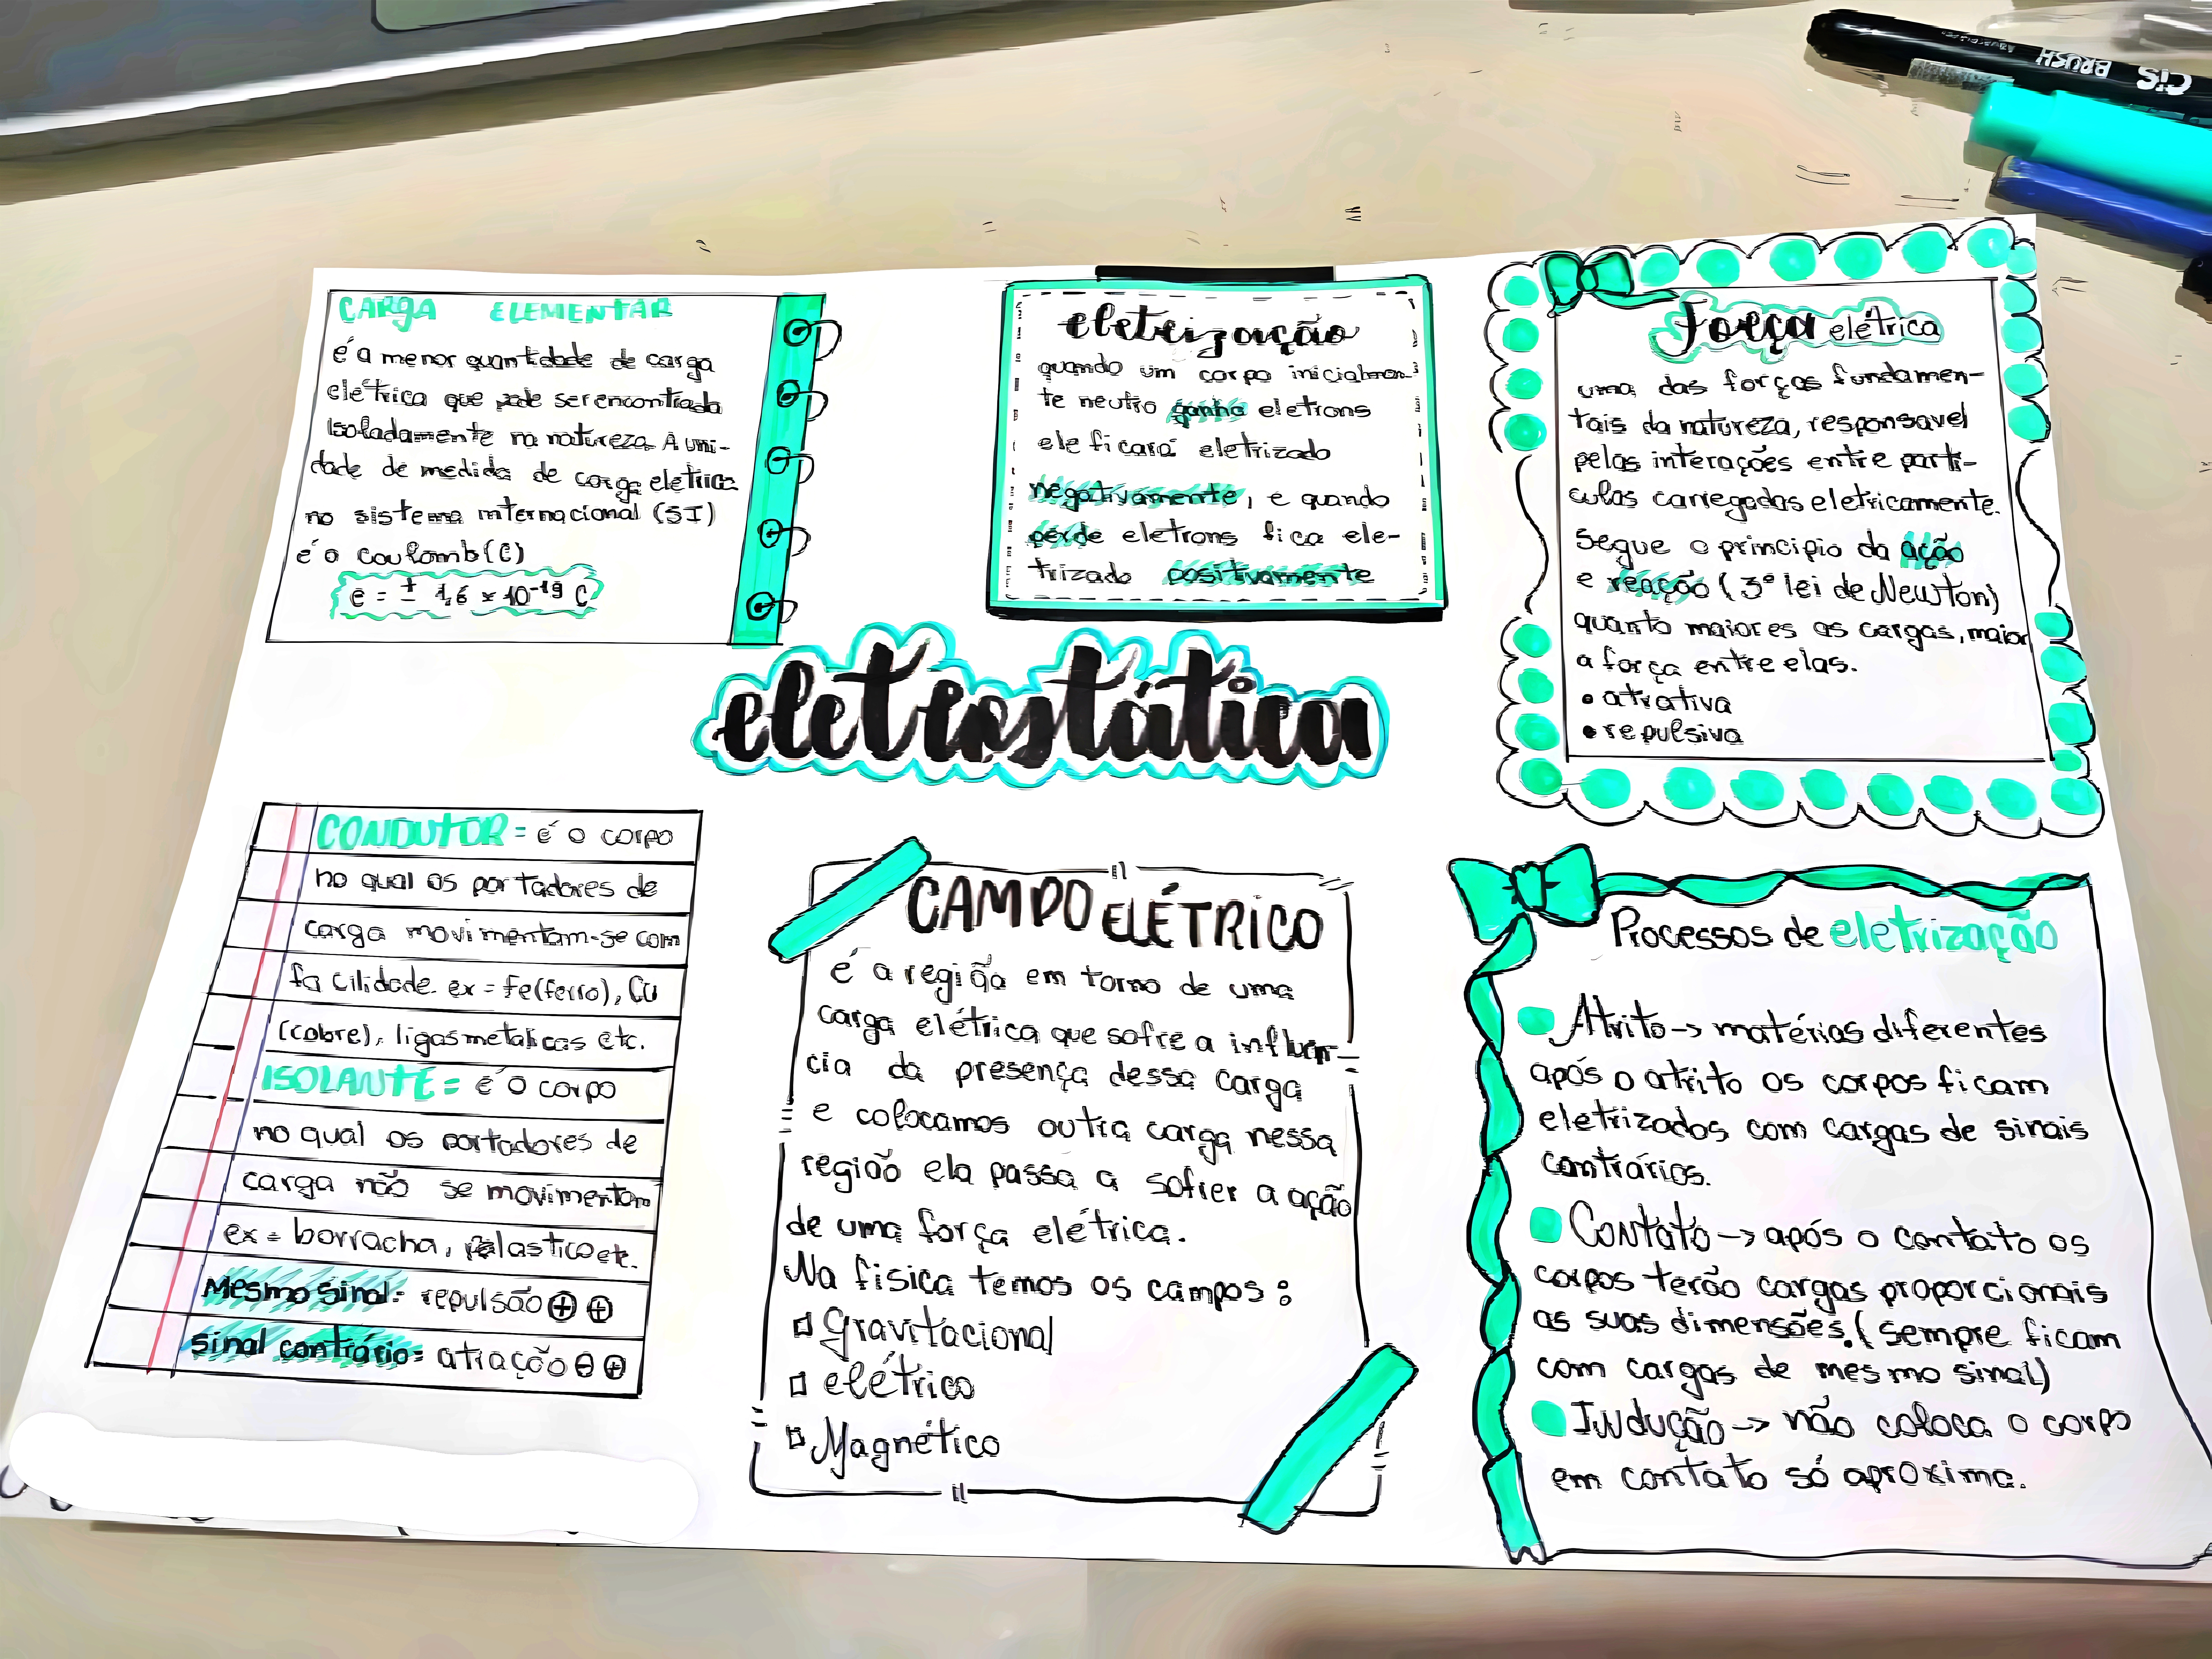 CARGA ELEMENTAR
é a menor quantidade de carga
elétrica que pode ser encontrada
Isoladamente na natureza. A uni-
dade de medida de carga eletrica
no sistema internacional (SI)
é o coulomb (C)
e = ± 1,6 × 10⁻¹⁹ C
eletrização
quando um corpo inicialmen-
te neutro ganha eletrons
ele ficará eletrizado
negativamente, e quando
perde eletrons fica ele-
trizado positivamente
Força elétrica
uma das forças fundamen-
tais da natureza, responsavel
pelas interações entre parti-
culas carregadas eletricamente.
Segue o principio da ação
e reação (3º lei de Newton)
quanto maiores as cargas, maior
a força entre elas.
• atrativa
• repulsiva
eletrostática
CONDUTOR = é o corpo
no qual os portadores de
carga movimentam-se com
facilidade. ex = Fe(ferro), Cu
(cobre), ligas metalicas etc.
ISOLANTE = é o corpo
no qual os portadores de
carga não se movimentam
ex = borracha, plastico etc.
Mesmo sinal: repulsão ⊕ ⊕
sinal contrário = atração ⊖ ⊕
CAMPO ELÉTRICO
é a região em torno de uma
carga elétrica que sofre a influên-
cia da presença dessa carga
e colocamos outra carga nessa
região ela passa a sofrer a ação
de uma força elétrica.
Na fisica temos os campos:
Gravitacional
elétrico
Magnético
Processos de eletrização
Atrito -> matérias diferentes
após o atrito os corpos ficam
eletrizados com cargas de sinais
contrários.
Contato -> após o contato os
corpos terão cargas proporcionais
as suas dimensões. (sempre ficam
com cargas de mesmo sinal)
Indução -> não coloca o corpo
em contato só aproxima.
CiS
BRUSH